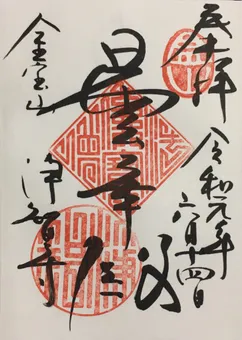 奉拝
令和元年
六月十四日
曇華殿
金宝山
浄智寺